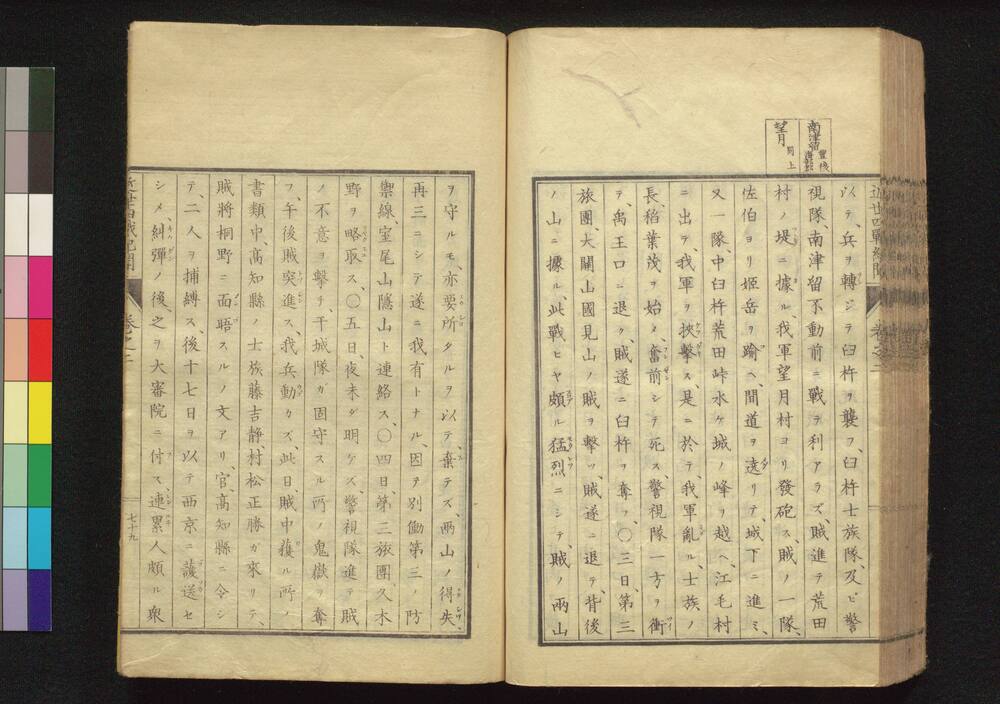 南津留 豊後海部
望月 同上
以テ、兵ヲ轉ジテ臼杵ヲ襲フ、臼杵士族隊、及ビ警
視隊、南津留不動前ニ戰テ利アラズ、賊進テ荒田
村ノ堤ニ據ル、我軍望月村ヨリ發砲ス、賊ノ一隊、
佐伯ヨリ姫岳ヲ踰ヘ、間道ヲ遶リテ、城下ニ進ミ、
又一隊、中臼杵荒田峠水ケ城ノ峰ヲ越ヘ、江毛村
ニ出テ、我軍ヲ挾擊ス、是ニ於テ、我軍亂ル、士族ノ
長、稻葉茂ヲ始メ、奮前シテ死ス、警視隊一方ヲ衝
テ、禹王口ニ退ク、賊遂ニ臼杵ヲ奪フ、〇三日、第三
旅團、大闢山國見山ノ賊ヲ擊ツ、賊遂ニ退テ、背後
ノ山ニ據ル、此戰ヒヤ頗ル猛烈ニシテ、賊ノ兩山
ヲ守ルモ、亦要所タルヲ以テ、棄テズ、兩山ノ得失、
再三ニシテ遂ニ我有トナル、因テ別働第三ノ防
禦線、室尾山隱山ト連絡ス、〇四日、第二旅團、久木
野ヲ略取ス、〇五日、夜未ダ明ケズ、警視隊進テ賊
ノ不意ヲ擊チ、干城隊ガ固守スル所ノ鬼嶽ヲ奪
フ、午後賊突進ス、我兵動カズ、此日、賊中獲ル所ノ
書類中、高知縣ノ士族藤吉靜、村松正勝ガ來リテ、
賊將桐野ニ面晤スルノ文アリ、官、高知縣ニ令シ
テ、二人ヲ捕縛ス、後十七日ヲ以テ西京ニ護送セ
シメ、糾彈ノ後、之ヲ大審院ニ付ス、連累人頗ル衆
七十九